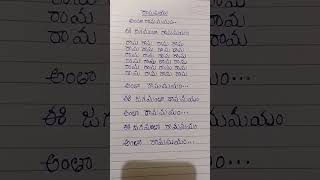 రామమయం
అంతా రామమయం
ఈ జగమంతా రామమయం
రామ రామ రామ రామ
రామ రామ రామ రామ
రామ రామ రామ రామ
రామ రామ రామ రామ
రామ రామ రామ రామ
అంతా రామమయం...
ఈ జగమంతా రామమయం
అంతా రామమయం...
ఈ జగమంతా రామమయం
అంతా రామమయం...